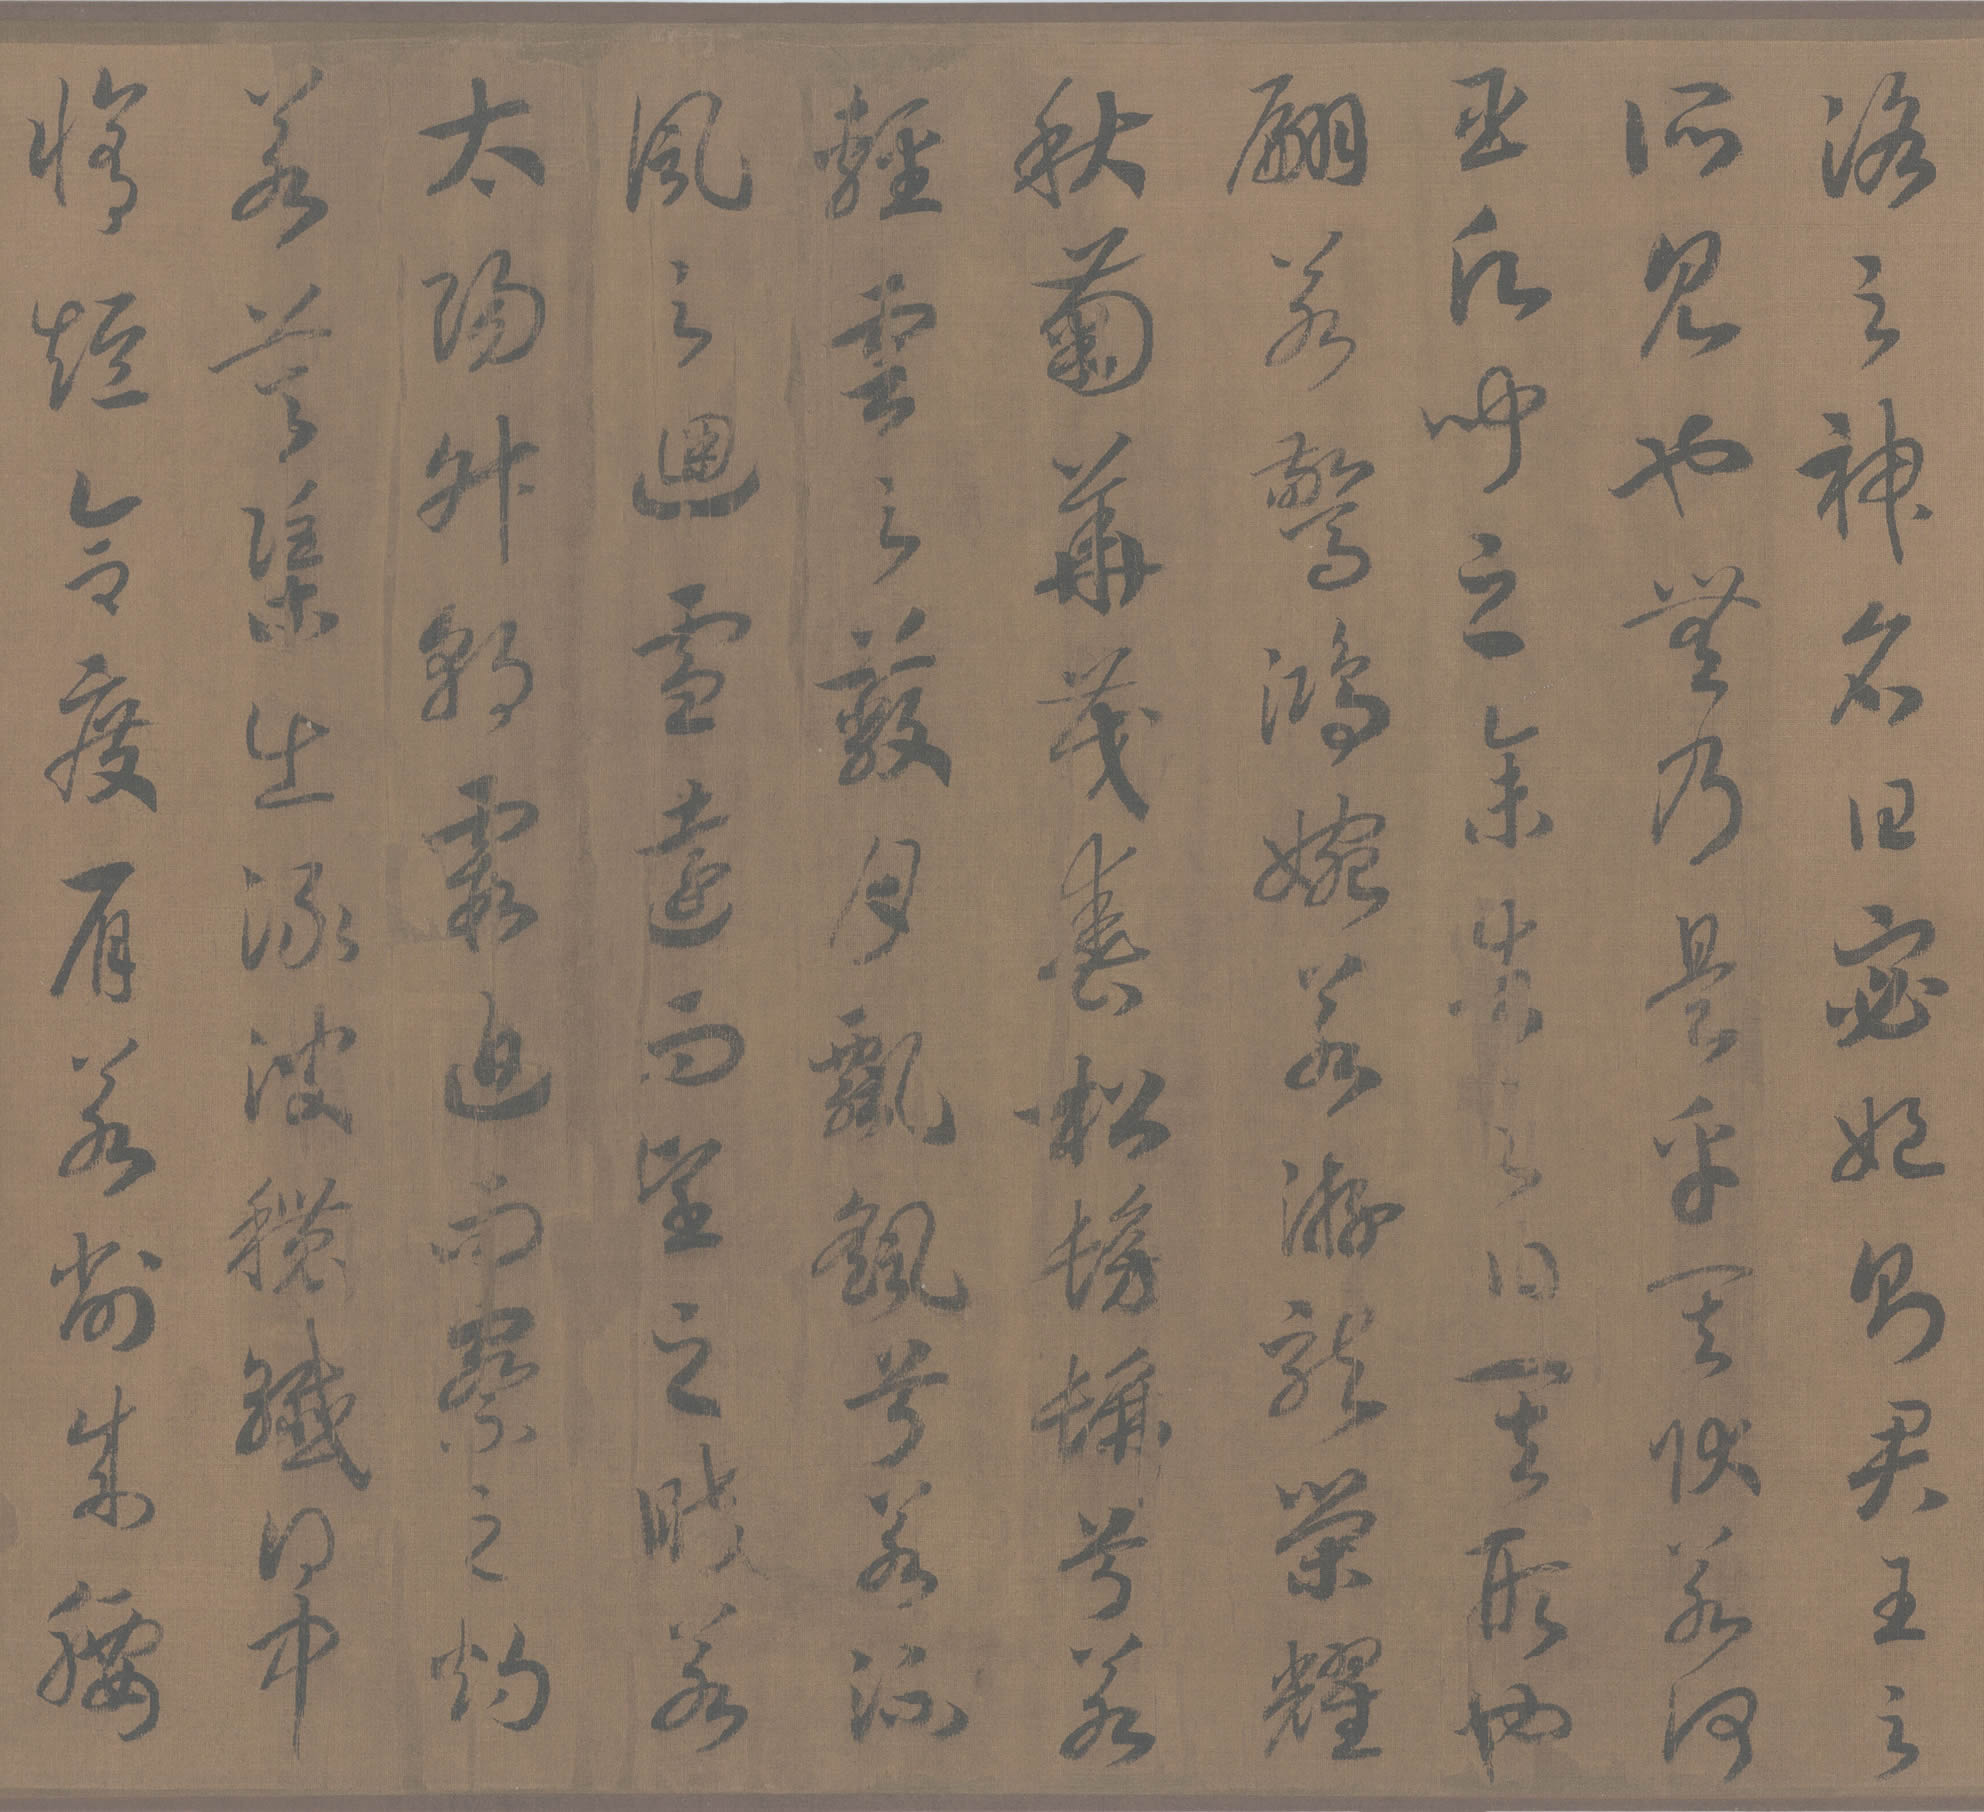 洛之神名曰宓妃則君王之
所見也無乃是乎其狀若何
臣願聞之余告之曰其形也
翩若驚鴻婉若游龍榮耀
秋菊華茂春松髣髴兮若
輕雲之蔽月飄颻兮若流
風之迴雪遠而望之皎若
太陽升朝霞迫而察之灼
若芙渠出淥波穠纖得中
脩短合度肩若削成腰